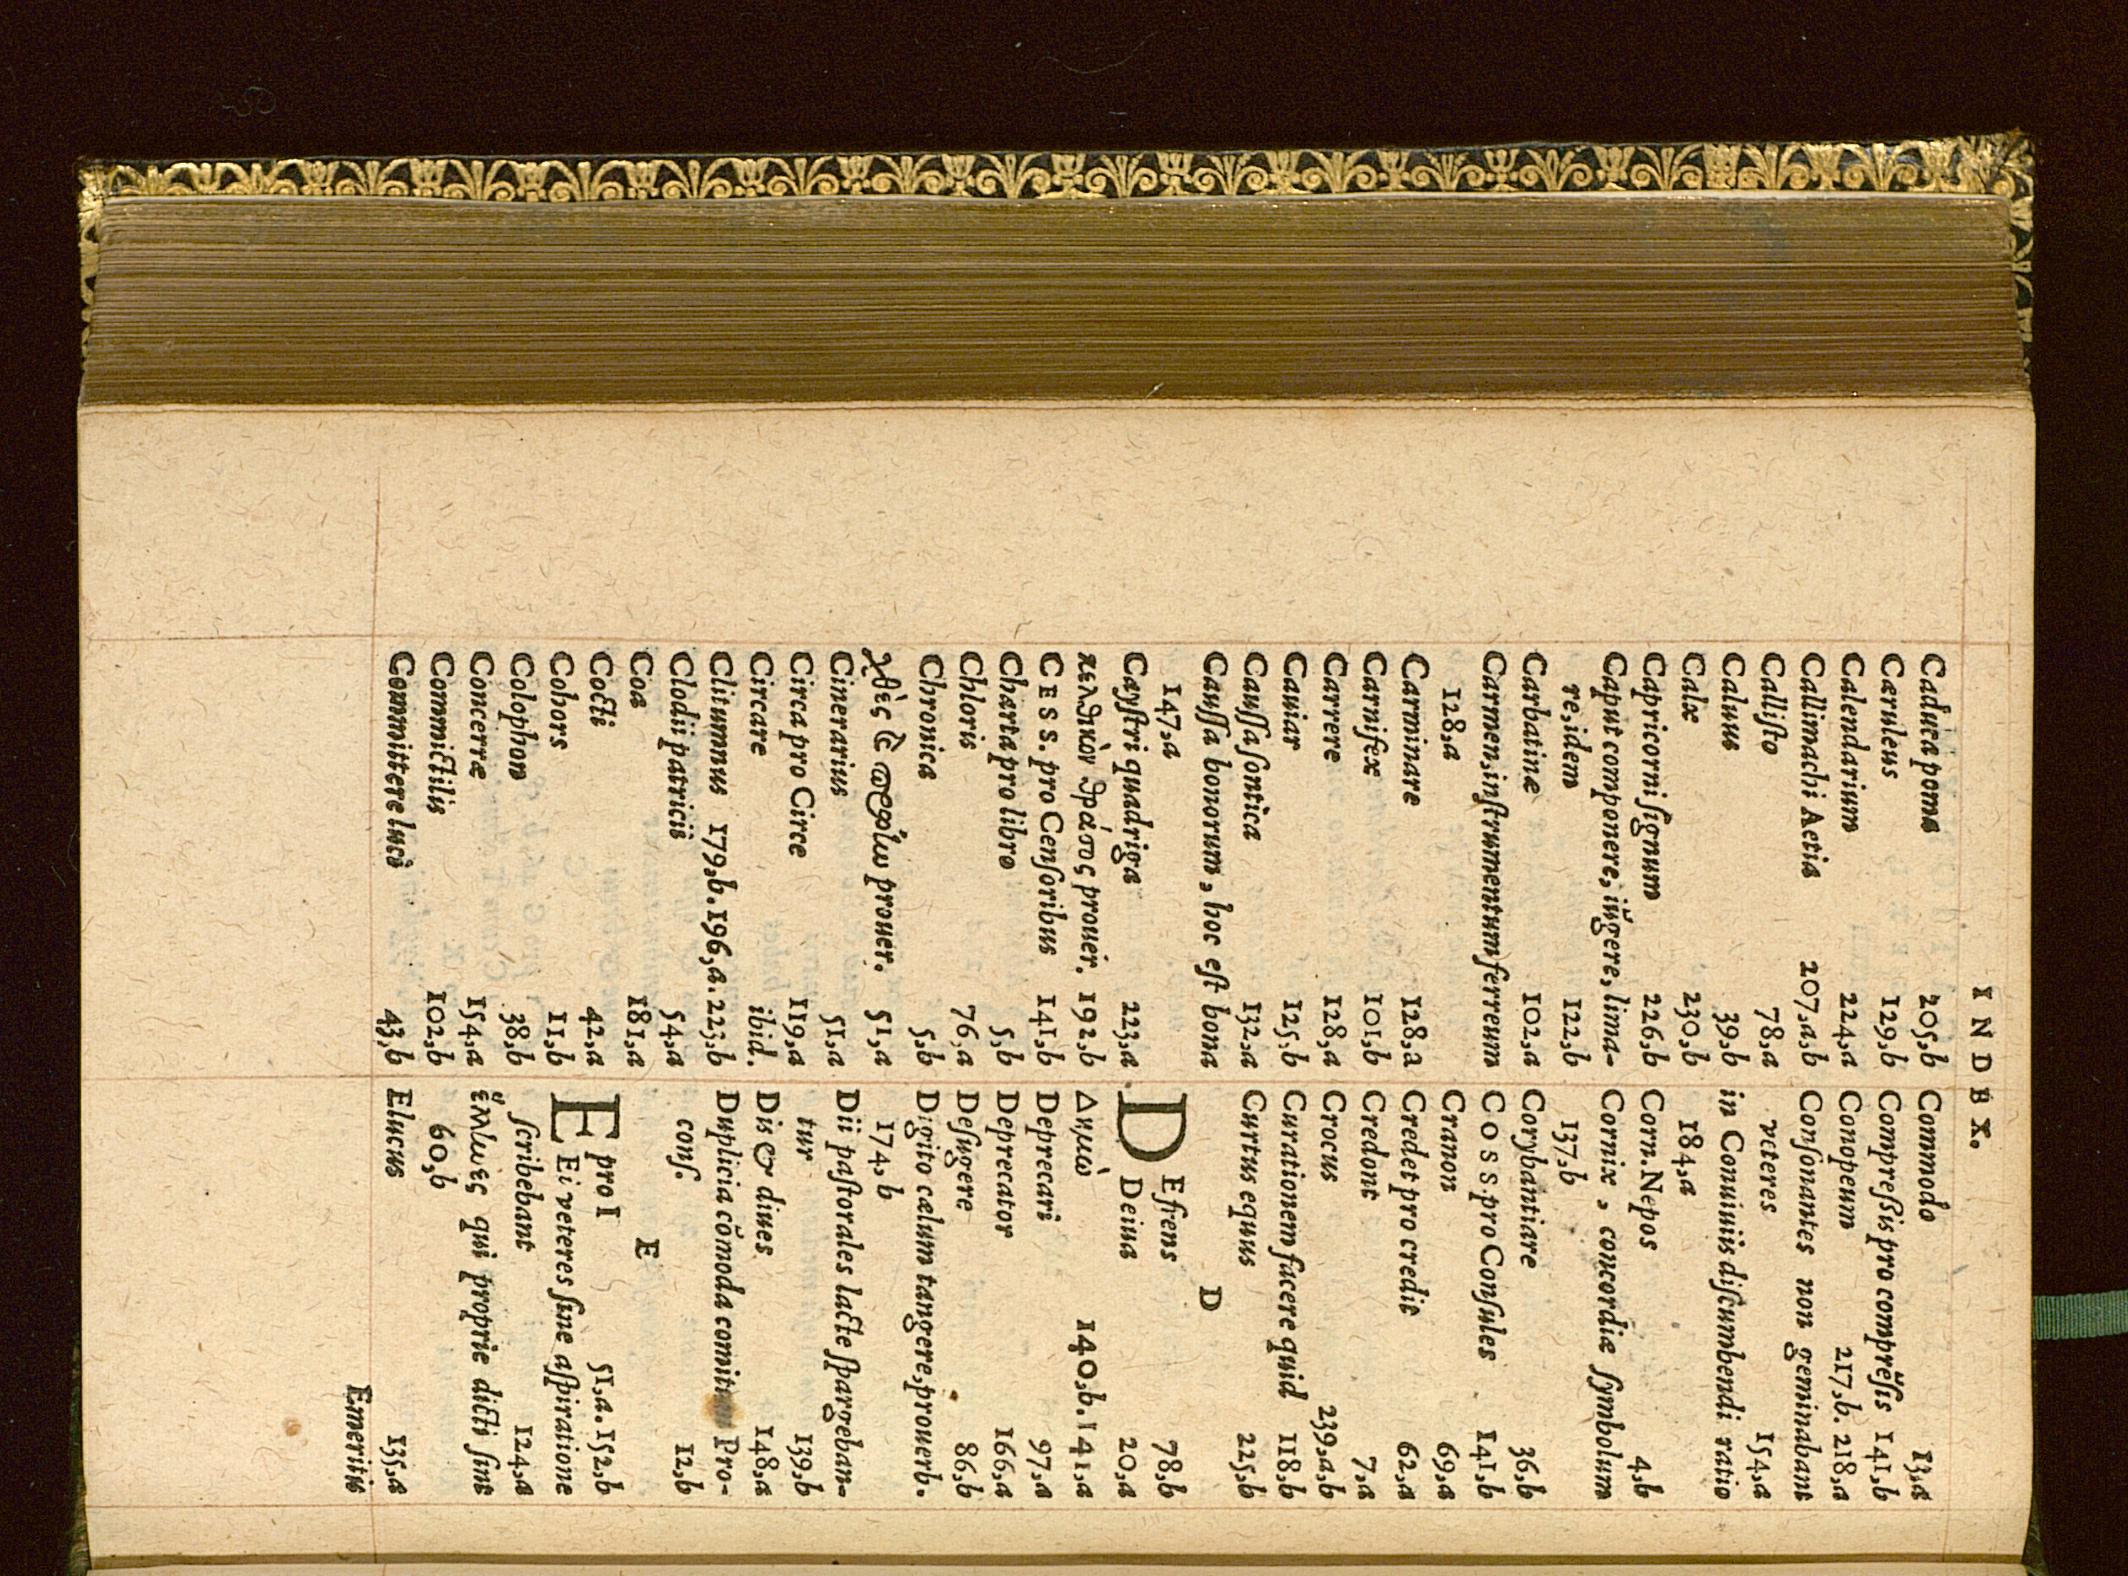 INDEX.
Caduca poma 205,b
Cæruleus 129,b
Calendarium 224,a
Callimachi Aetia 207,a,b
Calliſto 78,a
Caluus 39,b
Calx 230,b
Capricorni ſignum 226,b
Caput componere, iũgere, lima-
re, idem 122,b
Carbatinæ 102,a
Carmen, inſtrumentum ferreum
128,a
Carminare 128,a
Carnifex 101,b
Carrere 128,a
Cauiar 125,b
Cauſſa ſontica 132,a
Cauſſa bonorum, hoc eſt bona
147,a
Cayſtri quadriga 223,a
κελθικὸν θράσος prouer. 192,b
CESS. pro Cenſoribus 141,b
Charta pro libro 5,b
Chloris 76,a
Chronica 5,b
χθὲς prouer. 51,a
Cinerarius 51,a
Circa pro Circe 119,a
Circare ibid.
Clitumnus 179,b. 196,a. 223,b
Clodii patricii 54,a
Coa 181,a
Cocti 42,a
Cohors 11,b
Colophon 38,b
Concerræ 154,a
Commictilis 102,b
Committere luci 43,b
Commodo 13,a
Compreſſis pro comprẽſis 141,b
Conopeum 217,b. 218,a
Conſonantes non geminabant
veteres 154,a
in Conuiuiis diſcumbendi ratio
184,a
Corn. Nepos 4,b
Cornix, concordiæ ſymbolum
137,b
Corybantiare 36,b
COSS. pro Conſules 141,b
Cranon 69,a
Credet pro credit 62,a
Credont 7,a
Crocus 239,a,b
Curationem facere quid 118,b
Curtus equus 225,b
D
DEfiens 78,b
Deiua 20,a
Δημὼ 140,b. 141,a
Deprecari 97,a
Deprecator 166,a
Deſugere 86,b
Digito cælum tangere, prouerb.
174,b
Dii paſtorales lacte ſpargeban-
tur 139,b
Dis & diues 148,a
Duplicia cõmoda comitum Pro-
conſ. 12,b
E
E pro I 51,a. 152,b
Ei veteres ſine aſpiratione
ſcribebant 124,a
qui proprie dicti ſint
60,b
Elucus 135,a
Emeritis